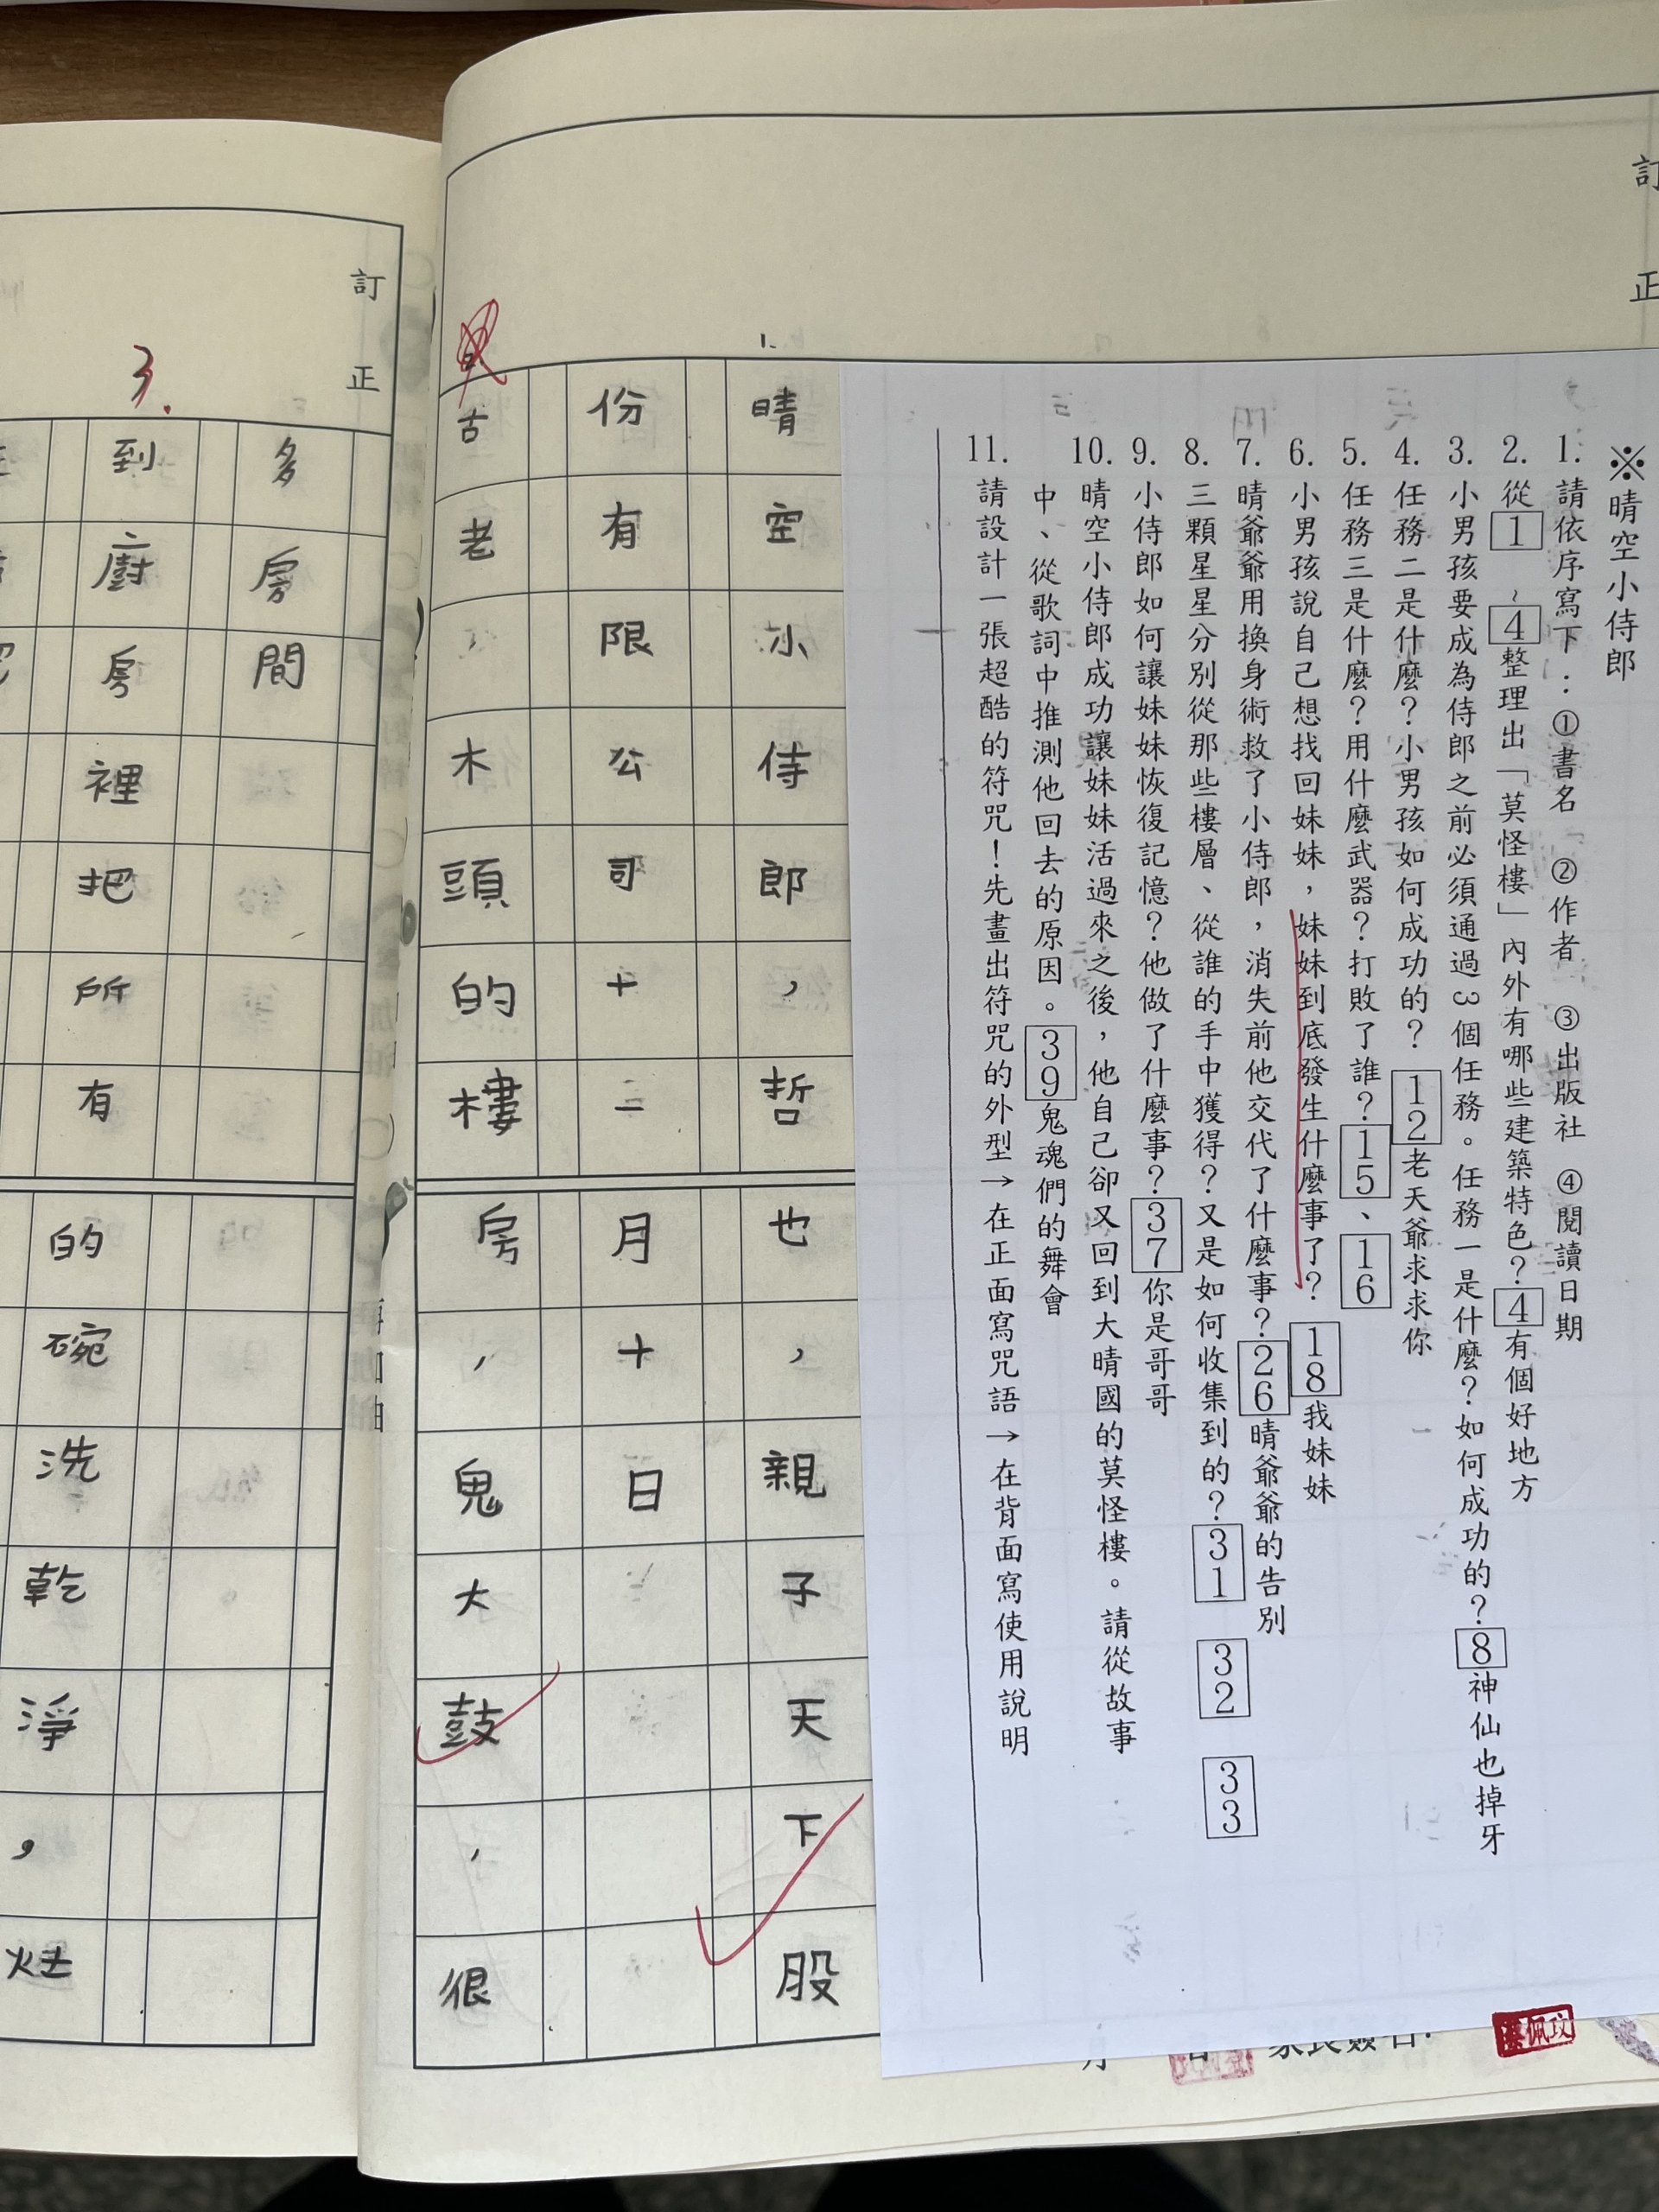 訂正
※晴空小侍郎
1. 請依序寫下：①書名 ②作者 ③出版社 ④閱讀日期
2. 從1～4整理出「莫怪樓」內外有哪些建築特色？4有個好地方
3. 小男孩要成為侍郎之前必須通過3個任務。任務一是什麼？如何成功的？8神仙也掉牙
4. 任務二是什麼？小男孩如何成功的？12老天爺求求你
5. 任務三是什麼？用什麼武器？打敗了誰？15、16
6. 小男孩說自己想找回妹妹，妹妹到底發生什麼事了？18我妹妹
7. 晴爺爺用換身術救了小侍郎，消失前他交代了什麼事？26晴爺爺的告別
8. 三顆星星分別從那些樓層、從誰的手中獲得？又是如何收集到的？31 32 33
9. 小侍郎如何讓妹妹恢復記憶？他做了什麼事？37你是哥哥
10. 晴空小侍郎成功讓妹妹活過來之後，他自己卻又回到大晴國的莫怪樓。請從故事
中、從歌詞中推測他回去的原因。39鬼魂們的舞會
11. 請設計一張超酷的符咒！先畫出符咒的外型→在正面寫咒語→在背面寫使用說明
1.
晴空小侍郎，哲也，親子天下股
份有限公司十二月十日
古老，木頭的樓房，鬼大鼓，很
訂正
多房間
3.
到廚房裡把所有的碗洗乾淨，灶